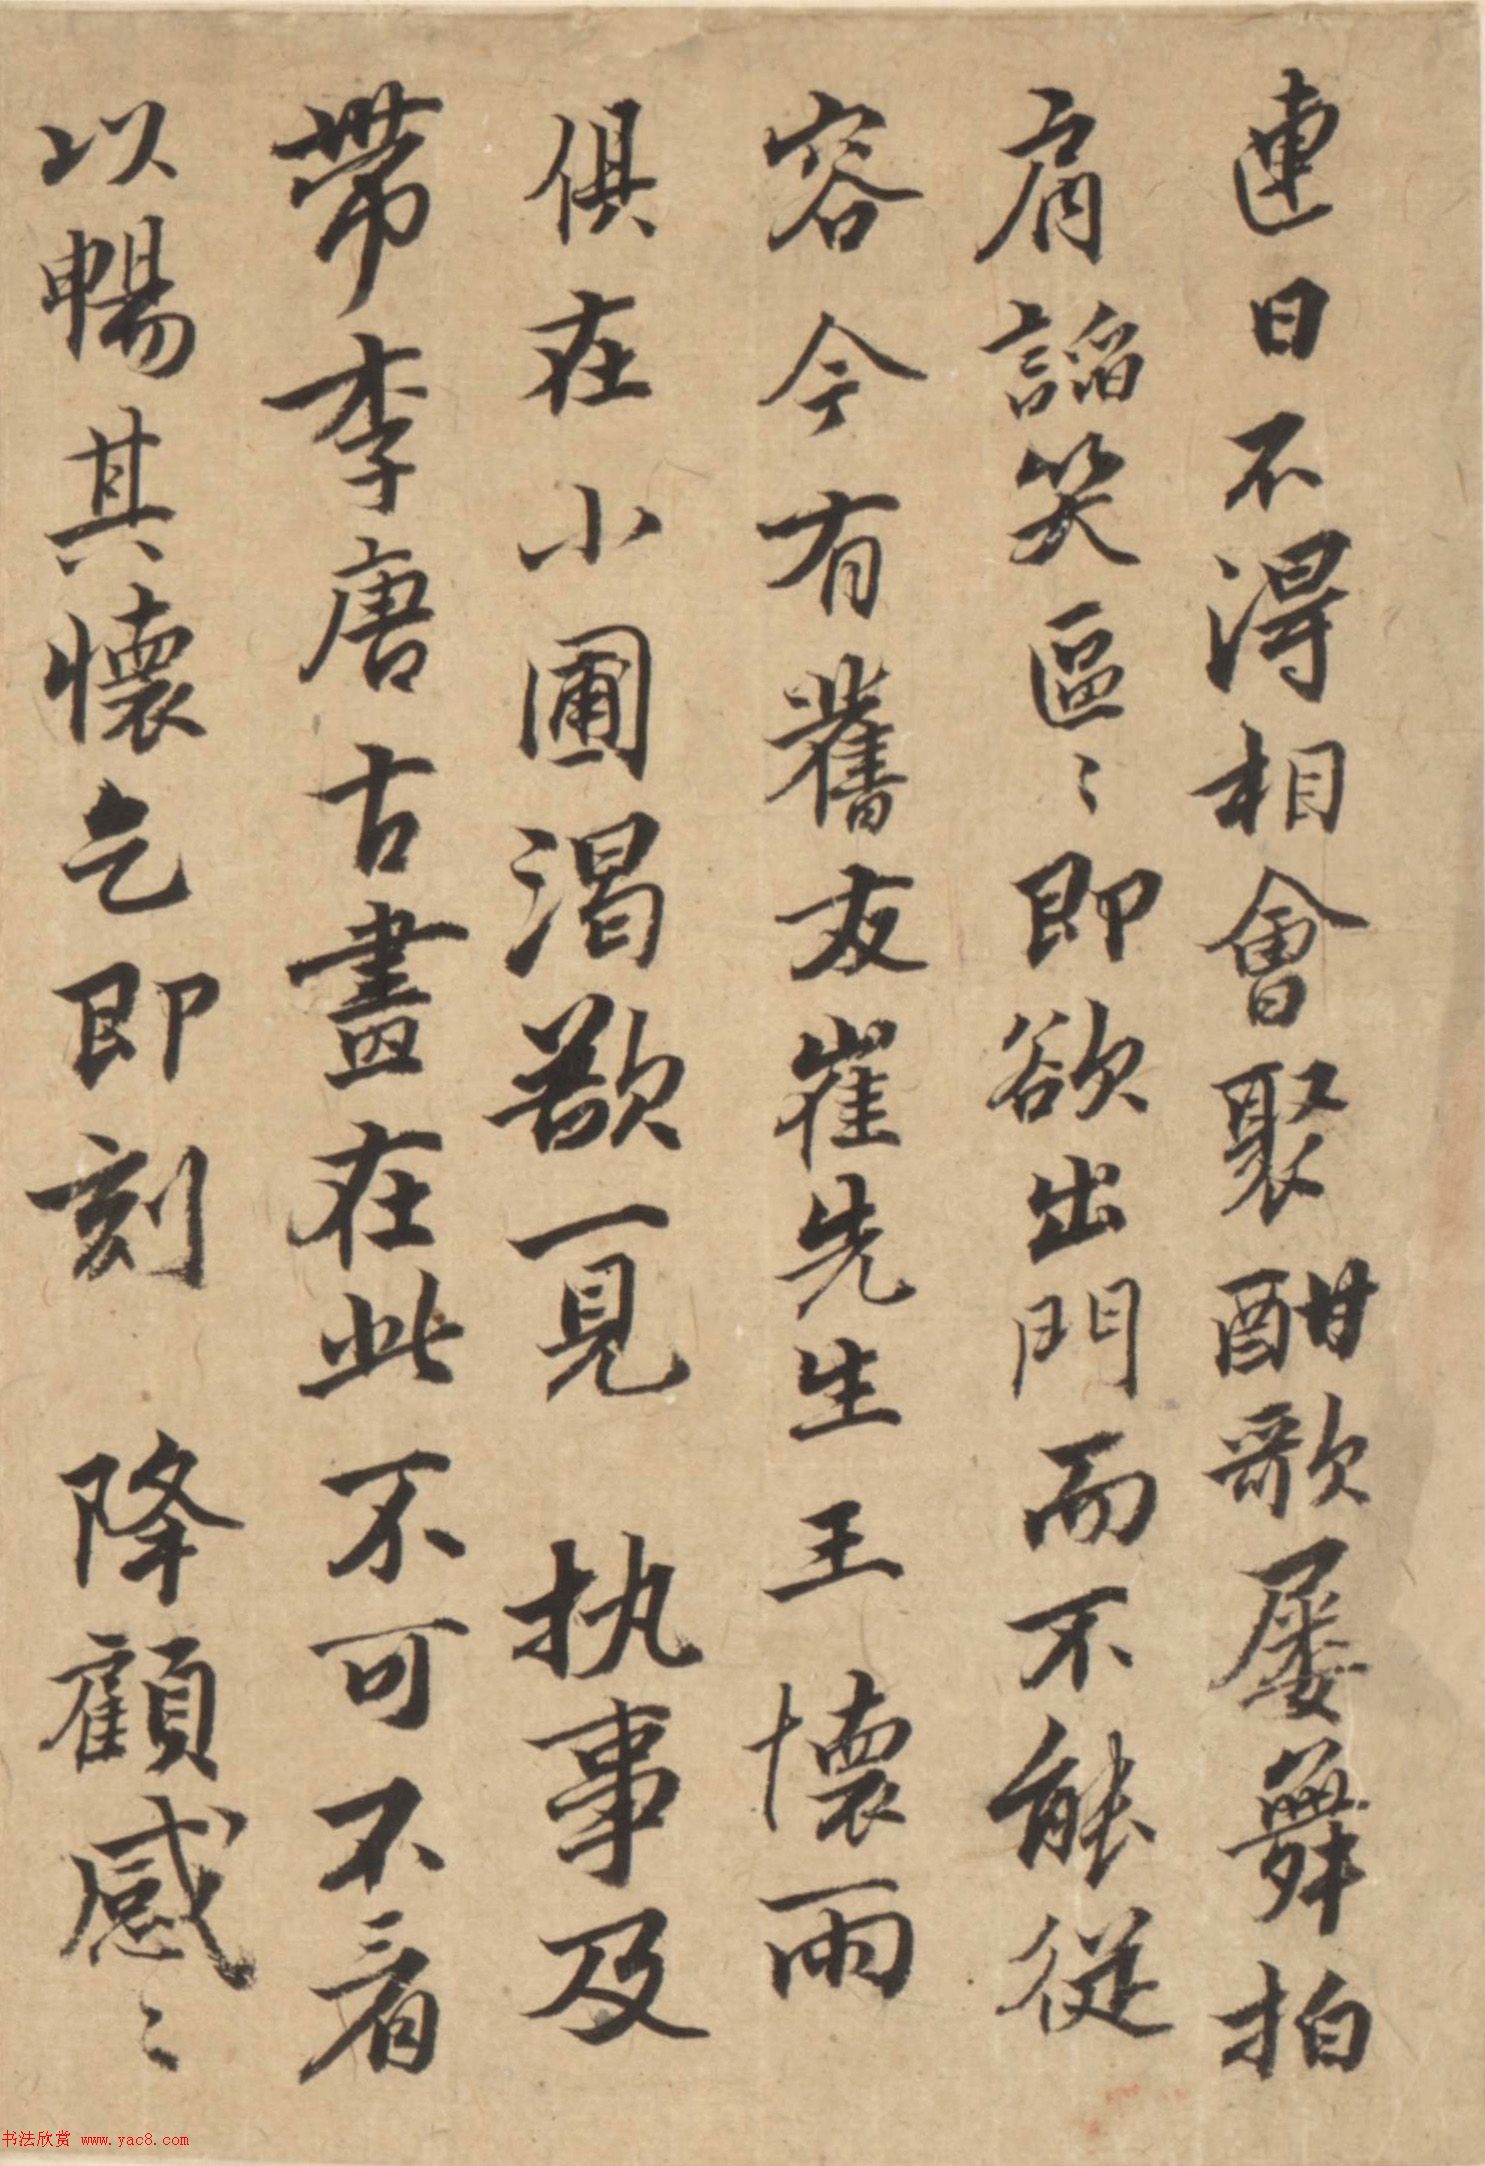 連日不得相會聚酣歌屡舞拍
肩謟笑區〻即欲出門而不能從
容今有舊友崔先生王懷雨
俱在小圃渴欲一見執事及
帶李唐古畫在此不可不看
以暢其懷乞即刻降顧感〻
书法欣赏 www.yac8.com